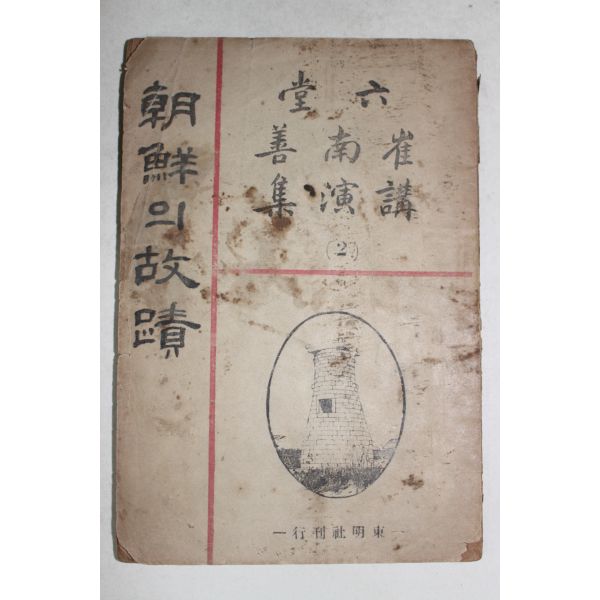 六堂
崔南善
講演集
(2)
朝鮮의故蹟
東明社刊行